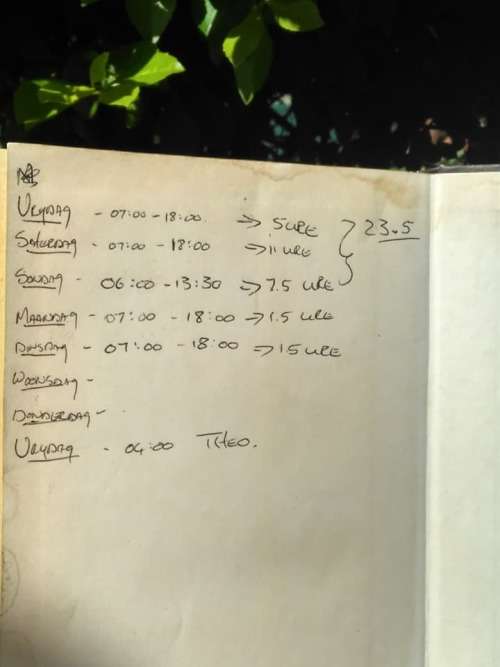 VRYDAG - 07:00 - 18:00. => 5 URE } 23.5
SATERDAG - 07:00 - 18:00 => 11 URE
SONDAG - 06:00 - 13:30 => 7.5 URE
MAANDAG - 07:00 - 18:00 => 1.5 URE
DINSDAG - 07:00 - 18:00 => 15 URE
WOONSDAG -
DONDERDAG -
VRYDAG - 04:00 THEO.